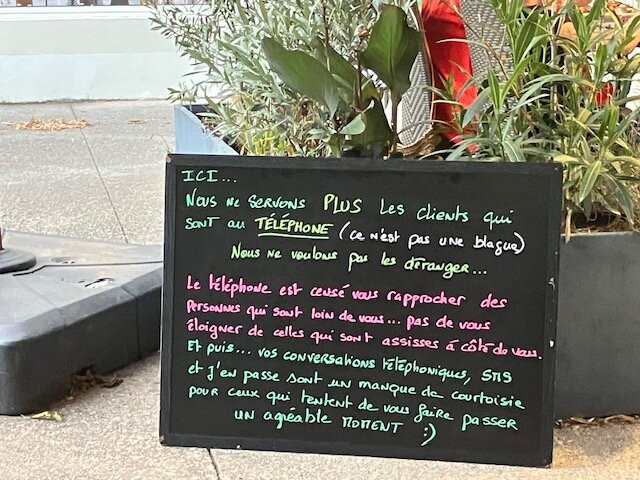 ICI...
NOUS NE SERVONS PLUS LES CLIENTS QUI
SONT AU TÉLÉPHONE (CE N'EST PAS UNE BLAGUE)
NOUS NE VOULONS PAS LES DÉRANGER...
LE TÉLÉPHONE EST CENSÉ VOUS RAPPROCHER DES
PERSONNES QUI SONT LOIN DE VOUS... PAS DE VOUS
ÉLOIGNER DE CELLES QUI SONT ASSISSES À CÔTÉ DE VOUS.
ET PUIS... VOS CONVERSATIONS TÉLÉPHONIQUES, SMS
ET J'EN PASSE SONT UN MANQUE DE COURTOISIE
POUR CEUX QUI TENTENT DE VOUS FAIRE PASSER
UN AGRÉABLE MOMENT :)